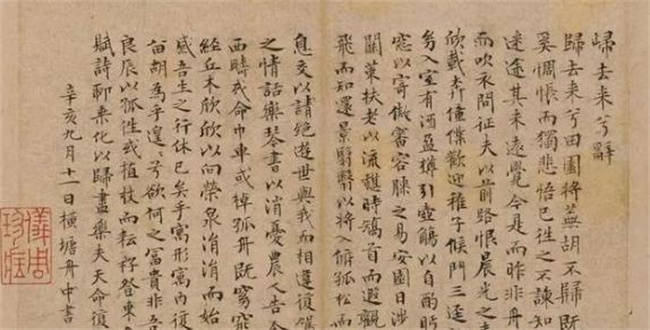 歸去來兮辭
歸去來兮田園將蕪胡不歸既
奚惆悵而獨悲悟已往之不諫知
迷途其未遠覺今是而昨非舟
而吹衣問征夫以前路恨晨光之
欣載奔僮僕歡迎稚子候門三逕
幼入室有酒盈樽引壺觴以自酌眄
窓以寄傲審容膝之易安園日涉
關策扶老以流憩時矯首而遐觀
飛而知還景翳翳以將入撫孤松而
息交以請絶遊世與我而相違復駕
之情話樂琴書以消憂農人告余
西疇或命巾車或棹孤舟既窈窕
經丘木欣欣以向榮泉涓涓而始
感吾生之行休已矣乎寓形寓內復
留胡為乎遑〻兮欲何之富貴非吾
良辰以孤往或植杖而耘耔登東
賦詩聊乘化以歸盡樂夫天命復
辛亥九月十一日橫塘舟中書
儀周珍藏